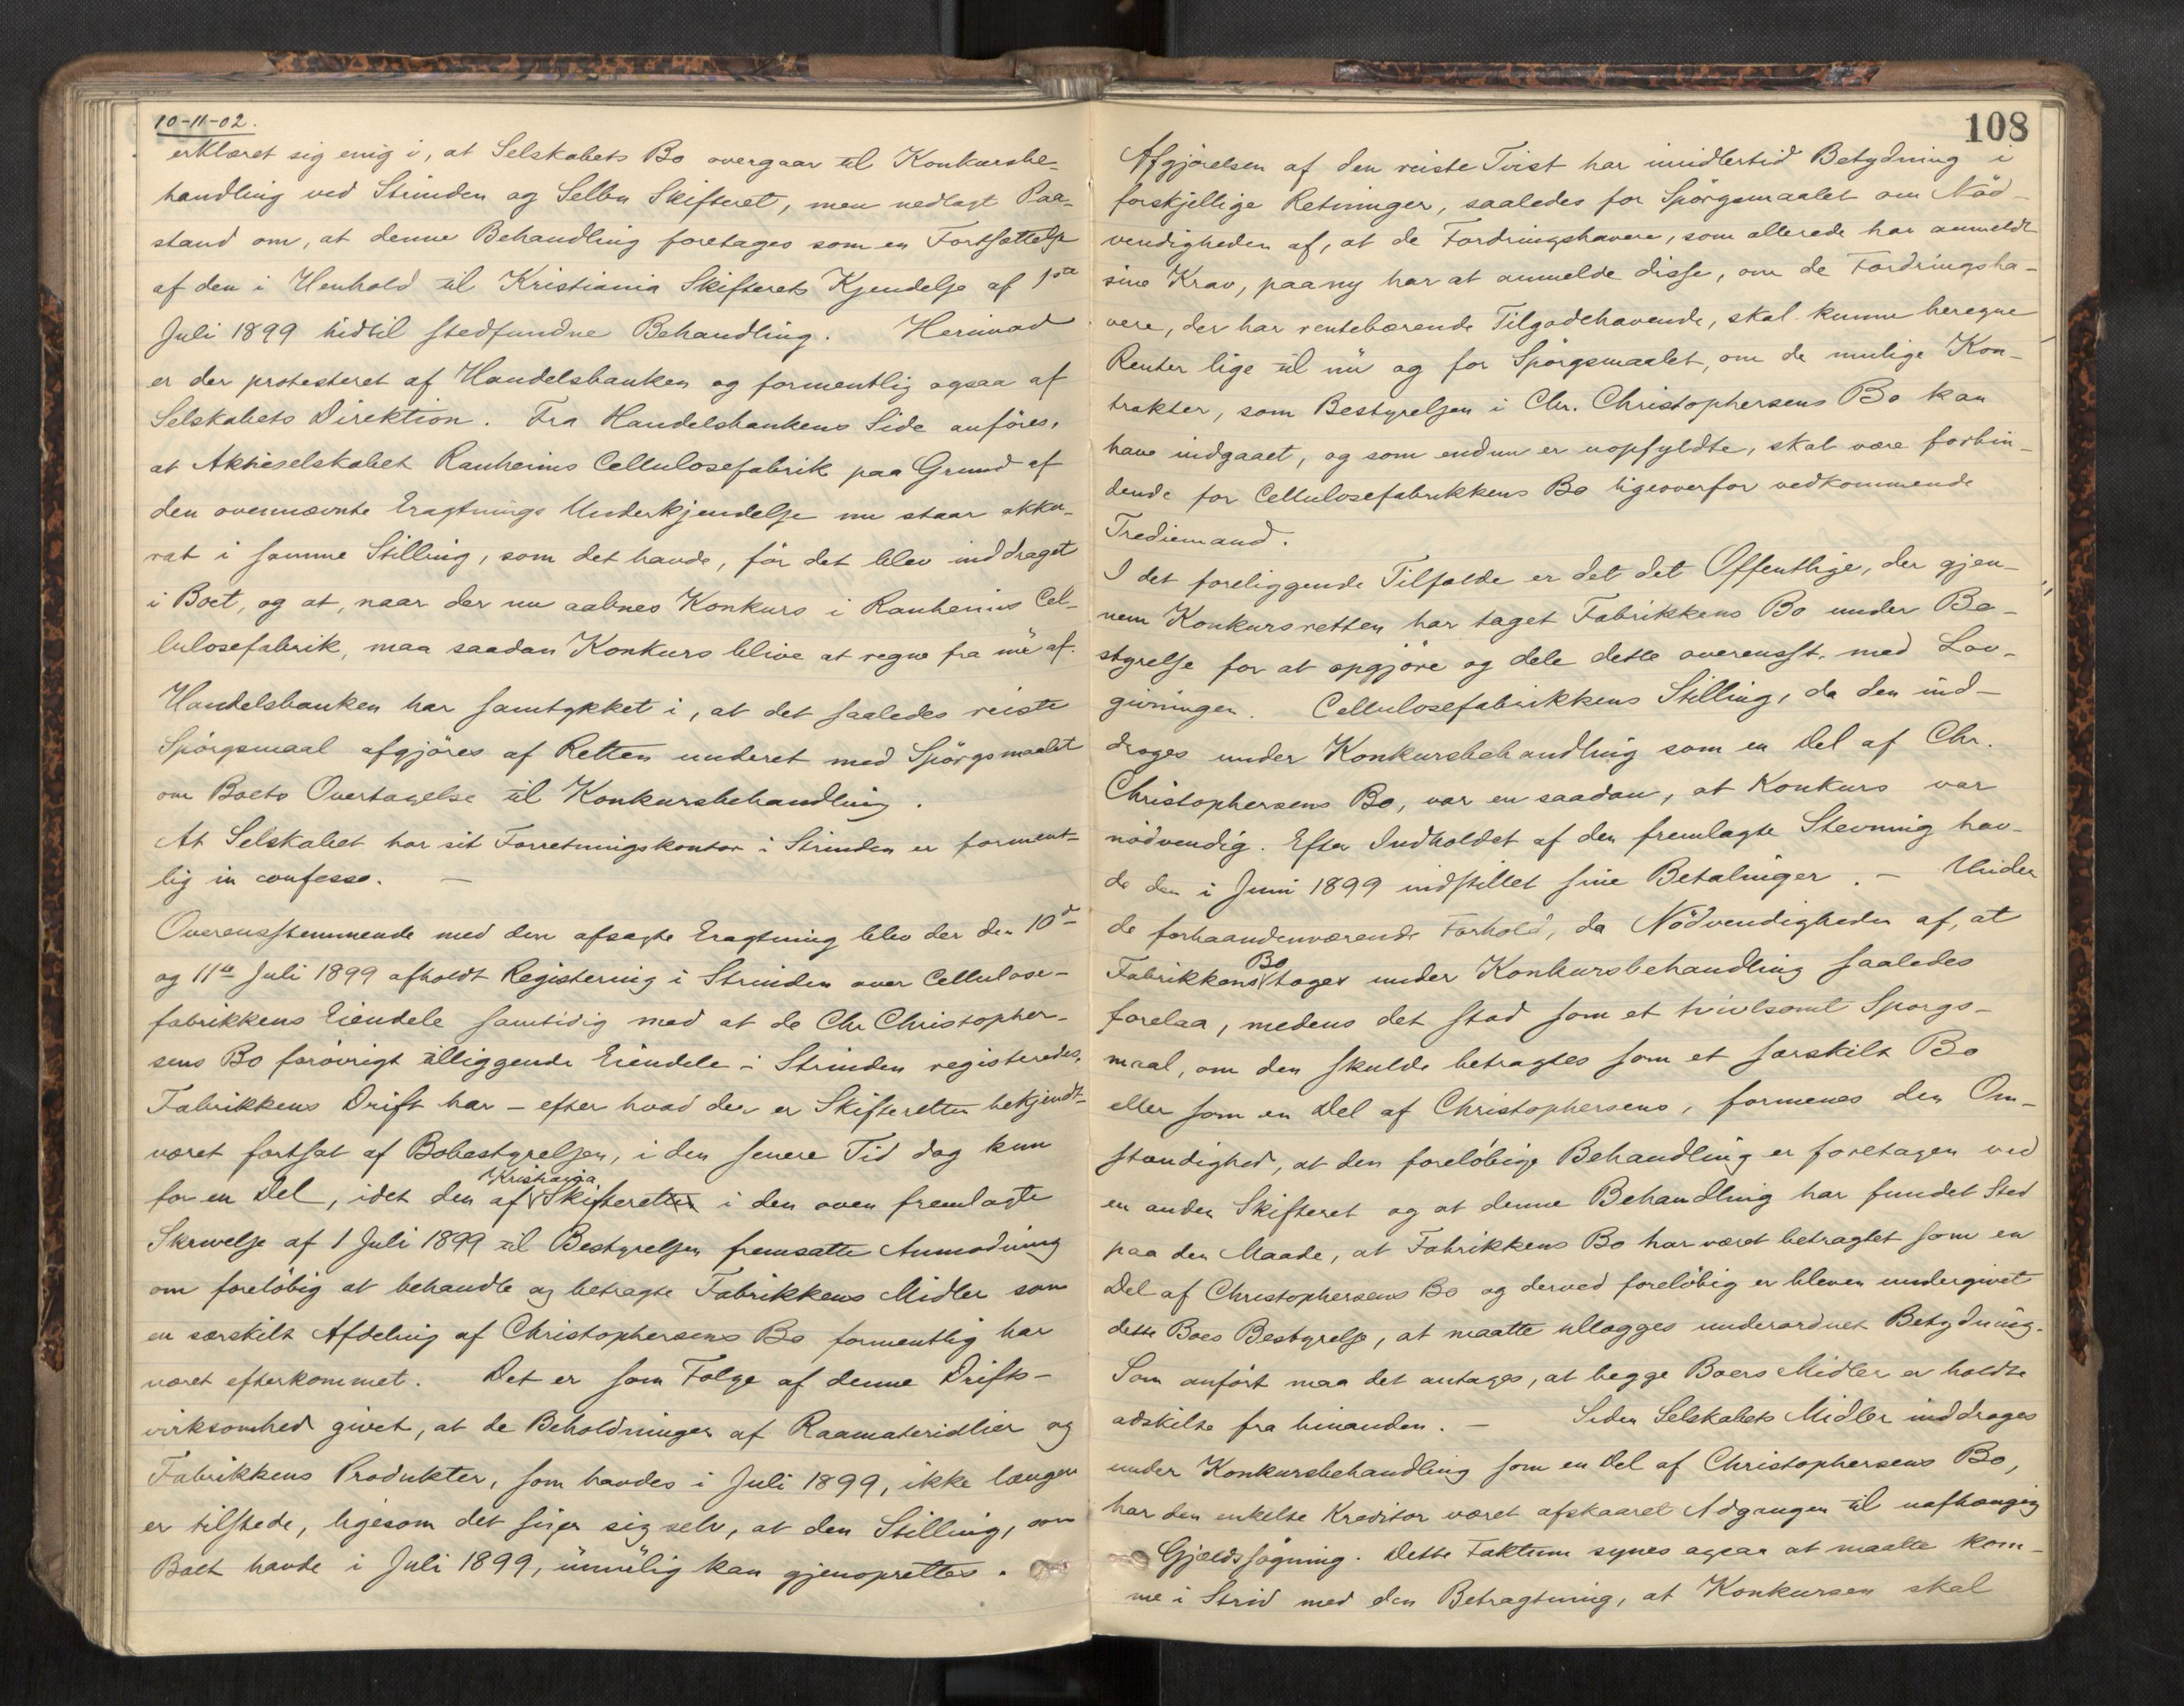 10-11-02.
erklæret sig enig i, at Selskabets Bo overgaar til Konkursbe-
handling ved Strinden og Selbu Skifteret, men nedlagt Paa-
stand om, at denne Behandling foretages som en Fortsættelse
af den i Henhold til Kristiania Skifterets Kjendelse af 1ste
Juli 1899 hidtil stedfundne Behandling. Herimod
er der protesteret af Handelsbanken og formentlig ogsaa af
Selskabets Direktion. Fra Handelsbankens Side anföres,
at Aktieselskabet Ranheims Cellulosefabrik paa Grund af
den ovennævnte Eragtnings Underkjendelse nu staar akku-
rat i samme Stilling, som det havde, för det blev inddraget
i Boet, og at, naar der nu aabnes Konkurs i Ranheims Cel-
lulosefabrik, maa saadan Konkurs blive at regne fra nü af.
Handelsbanken har samtykket i, at det saaledes reiste
Spörgsmaal afgjöres af Retten underet med Spörgsmaalet
om Boets Overtagelse til Konkursbehandling.
At Selskabet har sit Forretningskontor i Strinden er forment-
lig in confesso. —
Overensstemmende med den afsagte Eragtning blev der den 10de
og 11te Juli 1899 afholdt Registering i Strinden over Cellulose-
fabrikkens Eiendele samtidig med at de Chr Christopher-
sens Bo forövrigt tilliggende Eiendele i Strinden registeredes.
Fabrikkens Drift har – efter hvad der er Skifteretten bekjendt –
været fortsat af Bobestyrelsen, i den senere Tid dog kun
for en Del, idet den af Kristiania Skifteretten i den oven fremlagte
Skrivelse af 1 Juli 1899 til Bestyrelsen fremsatte Anmodning
om forelöbig at behandle og betragte Fabrikkens Midler som
en særskilt Afdeling af Christophersens Bo formentlig har
været efterkommet. Det er som Følge af denne Drifts-
virksomhed givet, at de Beholdninger af Raamaterialier og
Fabrikkens Produkter, som havdes i Juli 1899, ikke længer
er tilstede, ligesom det siger sig selv, at den Stilling, som
Boet havde i Juli 1899, ümülig kan gjenoprettes.
108
Afgjörelsen af den reiste Tvist har imidlertid Betydning i
forskjellige Retninger, saaledes for Spörgsmaalet om Nöd-
vendigheden af, at de Fordringshavere, som allerede har anmeldt
sine Krav, paany har at anmelde disse, om de Fordringsha-
vere, der har rentebærende Tilgodehavende, skal kunne beregne
Renter lige til nü og for Spörgsmaalet, om de mulige Kon-
trakter, som Bestyrelsen i Chr. Christophersens Bo kan
have indgaaet, og som endnu er uopfyldte, skal være forbin-
dende for Cellulosefabrikkens Bo ligeoverfor vedkommende
Trediemand.
I det foreliggende Tilfælde er det det Offentlige, der gjen-
nem Konkursretten har taget Fabrikkens Bo under Be-
styrelse for at opgjöre og dele dette overensst. med Lov-
givningen. Cellulosefabrikkens Stilling, da den ind-
droges under Konkursbehandling som en Del af Chr.
Christophersens Bo, var en saadan, at Konkurs var
nödvendig. Efter Indholdet af den fremlagte Stevning hav-
de den i Juni 1899 indstillet sine Betalinger. – Under
de forhaandenværende Forhold, da Nödvendigheden af, at
Fabrikkens Bo toges under Konkursbehandling saaledes
forelaa, medens det stod som et tvivlsomt Spørgs-
maal, om den skulde betragtes som et særskilt Bo
eller som en Del af Christophersens, formenes den Om-
stændighed, at den forelöbige Behandling er foretagen ved
en anden Skifteret og at denne Behandling har fundet Sted
paa den Maade, at Fabrikkens Bo har været betragtet som en
Del af Christophersens Bo og derved forelöbig er bleven undergivet
dette Boes Bestyrelse, at maatte tillægges underordnet Betydning.
Som anfört maa det antages, at begge Boers Midler er holdte
adskilte fra hinanden. – Siden Selskabets Midler inddroges
under Konkursbehandling som en Del af Christophersens Bo,
har den enkelte Kreditor været afskaaret Adgangen til uafhængig
Gjældssögning. Dette Faktum synes ogsaa at maatte kom-
me i Strid med den Betragtning, at Konkursen skal